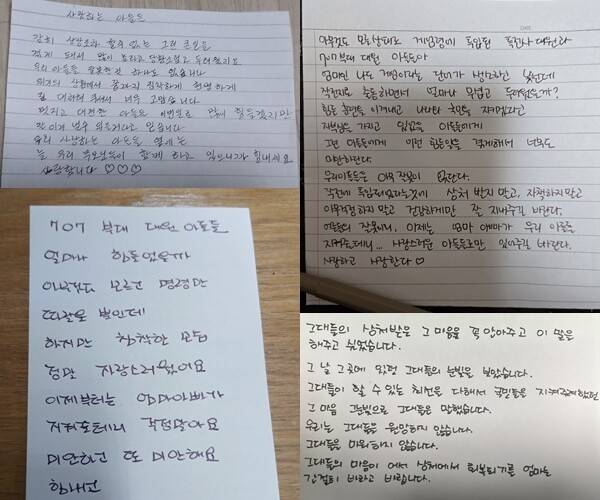 사랑하는 아들들
감히 상상조차 할수 없는 그런 큰일을
겪게 돼서 많이 놀라고 당황스럽고 두려웠지요
우리 아들들 잘못한것 하나도 없습니다
위기의 상황에서 끝까지 침착하게 현명하게
잘 대처해 주어서 너무 고맙습니다
멋지고 대견한 아들들 이번일로 많이 힘들겠지만
맘 아파 너무 괴로워하고 있습니다
우리 사랑하는 아들들 옆에는
늘 우리 부모님들이 함께 하고 있으니까 힘내세요
사랑합니다 ♡♡♡
아무것도 모른상태로 계엄령에 투입된 특전사 대원과
707 부대 대원 아들들아
엄마인 나도 계엄이라는 단어가 생각하고 싶던데
작전지로 출동하면서 얼마나 무섭고 두려웠을까?
힘든 훈련을 이겨내고 나라와 국민을 지켜겠다고
자부심을 가지고 있었을 아들들에게
그런 아들들에게 이런 힘든일을 겪게해서 너무도
미안하단다.
우리아들들은 아무 잘못이 없단다.
작전에 투입되었다는것에 상처 받지말고, 자책하지말고
아무걱정 하지말고 건강하게만 잘 지내주길 바란다.
어른들의 잘못이니, 이제는 엄마 아빠가 우리 아들을
지켜줄테니... 사랑스러운 아들들로만 있어주길 바란다.
사랑하고 사랑한다 ♡
707 부대 대원 아들들
얼마나 힘들었을까
아무것도 모르고 명령만
따랐을 뿐인데
하지만 침착한 모습
정말 자랑스러웠어요
이제부터는 엄마아빠가
지켜줄테니 걱정말아요
미안하고 또 미안해요
힘내고
그대들의 상처받은 그 마음을 꼭 안아주고 이 말을
해주고 싶었습니다.
그 날 그곳에 있던 그대들의 눈빛을 보았습니다.
그대들이 할 수 있는 최선을 다해서 국민들을 지켜주려했던
그 마음 눈빛으로 그대들은 말했습니다.
우리는 그대들을 원망하지 않습니다.
그대들을 미워하지 않습니다.
그대들의 마음이 어서 상처에서 회복되기를 엄마는
간절히 바라고 바랍니다.